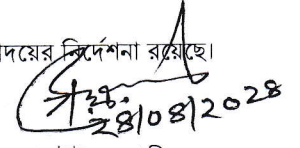 দয়ের নির্দেশনা রয়েছে।
২৪/০৪/২০২৪